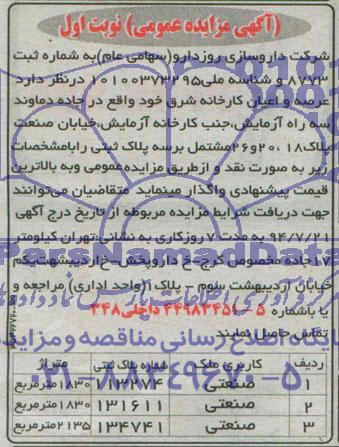 (آگهی مزایده عمومی) نوبت اول
شرکت داروسازی روزدارو(سهامی عام)به شماره ثبت
۸۷۷۳ و شناسه ملی۱۰۱۰۰۳۷۳۲۹۵ درنظر دارد
عرصه و اعیان کارخانه شرق خود واقع در جاده دماوند
سه راه آزمایش،جنب کارخانه آزمایش،خیابان صنعت
پلاک۱۸،۲۰و۲۶مشتمل برسه پلاک ثبتی رابامشخصات
زیر به صورت نقد و ازطریق مزایده عمومی وبه بالاترین
قیمت پیشنهادی واگذار مینماید متقاضیان می‌توانند
جهت دریافت شرایط مزایده مربوطه از تاریخ درج آگهی
۹۴/۷/۲۱ به مدت ۷ روزکاری به نشانی:تهران کیلومتر
۱۷جاده مخصوص کرج-خ داروپخش-خ اردیبهشت یکم
خیابان اردیبهشت سوم - پلاک ۱(واحد اداری) مراجعه و
یا باشماره ۵-۴۴۹۸۳۴۵۱ داخلی۳۴۸
تماس حاصل نمایند
پایگاه اطلاع رسانی مناقصه و مزایده
۰۲۱-۸۸۳۴۹۶۷۰-۵
ردیف کاربری ملک شماره پلاک ثبتی متراژ
۱ صنعتی ۱۱۳۲۷۴ ۱۸۳۰مترمربع
۲ صنعتی ۱۳۱۶۱۱ ۱۸۳۰مترمربع
۳ صنعتی ۱۳۴۷۴۱ ۲۱۳۵مترمربع